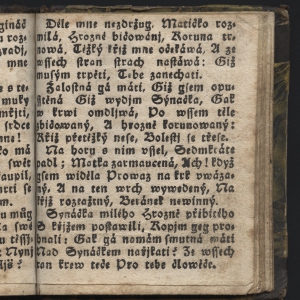 Déle mne nezdržug. Matičko roz-
milá, Hrozné bičowánj, Koruna tr-
nowá, Těžký křjž mne očekáwá, A ze
wssech stran strach nastáwá: Giž
musým trpěti, Tebe zanechati.
Žalostná gá máti, Giž gsem opu-
sstěná Giž wydjm Synáčka, Gak
w krwi omdljwá, Po wssem těle
zbičowaný, A hrozně korunowaný:
Křjž přetěžký nese, Bolestj se třese.
Na hory s nim wssel, Sedmkráte
padl; Matka zarmaucená, Ach! když
gsem widěla Prowaz na krk pwáza-
ný, A na ten wrch wywedený, Na
křjž roztažený, Beránek newinný.
Synáčka milého Hrozně přibitého
S křjžem postawili, Kopjm geg pro-
hnali: Gak gá nomám smutná máti
Nad Synáčkem nařjkati? Ze wssech
ran krew teče Pro tebe člowěče.